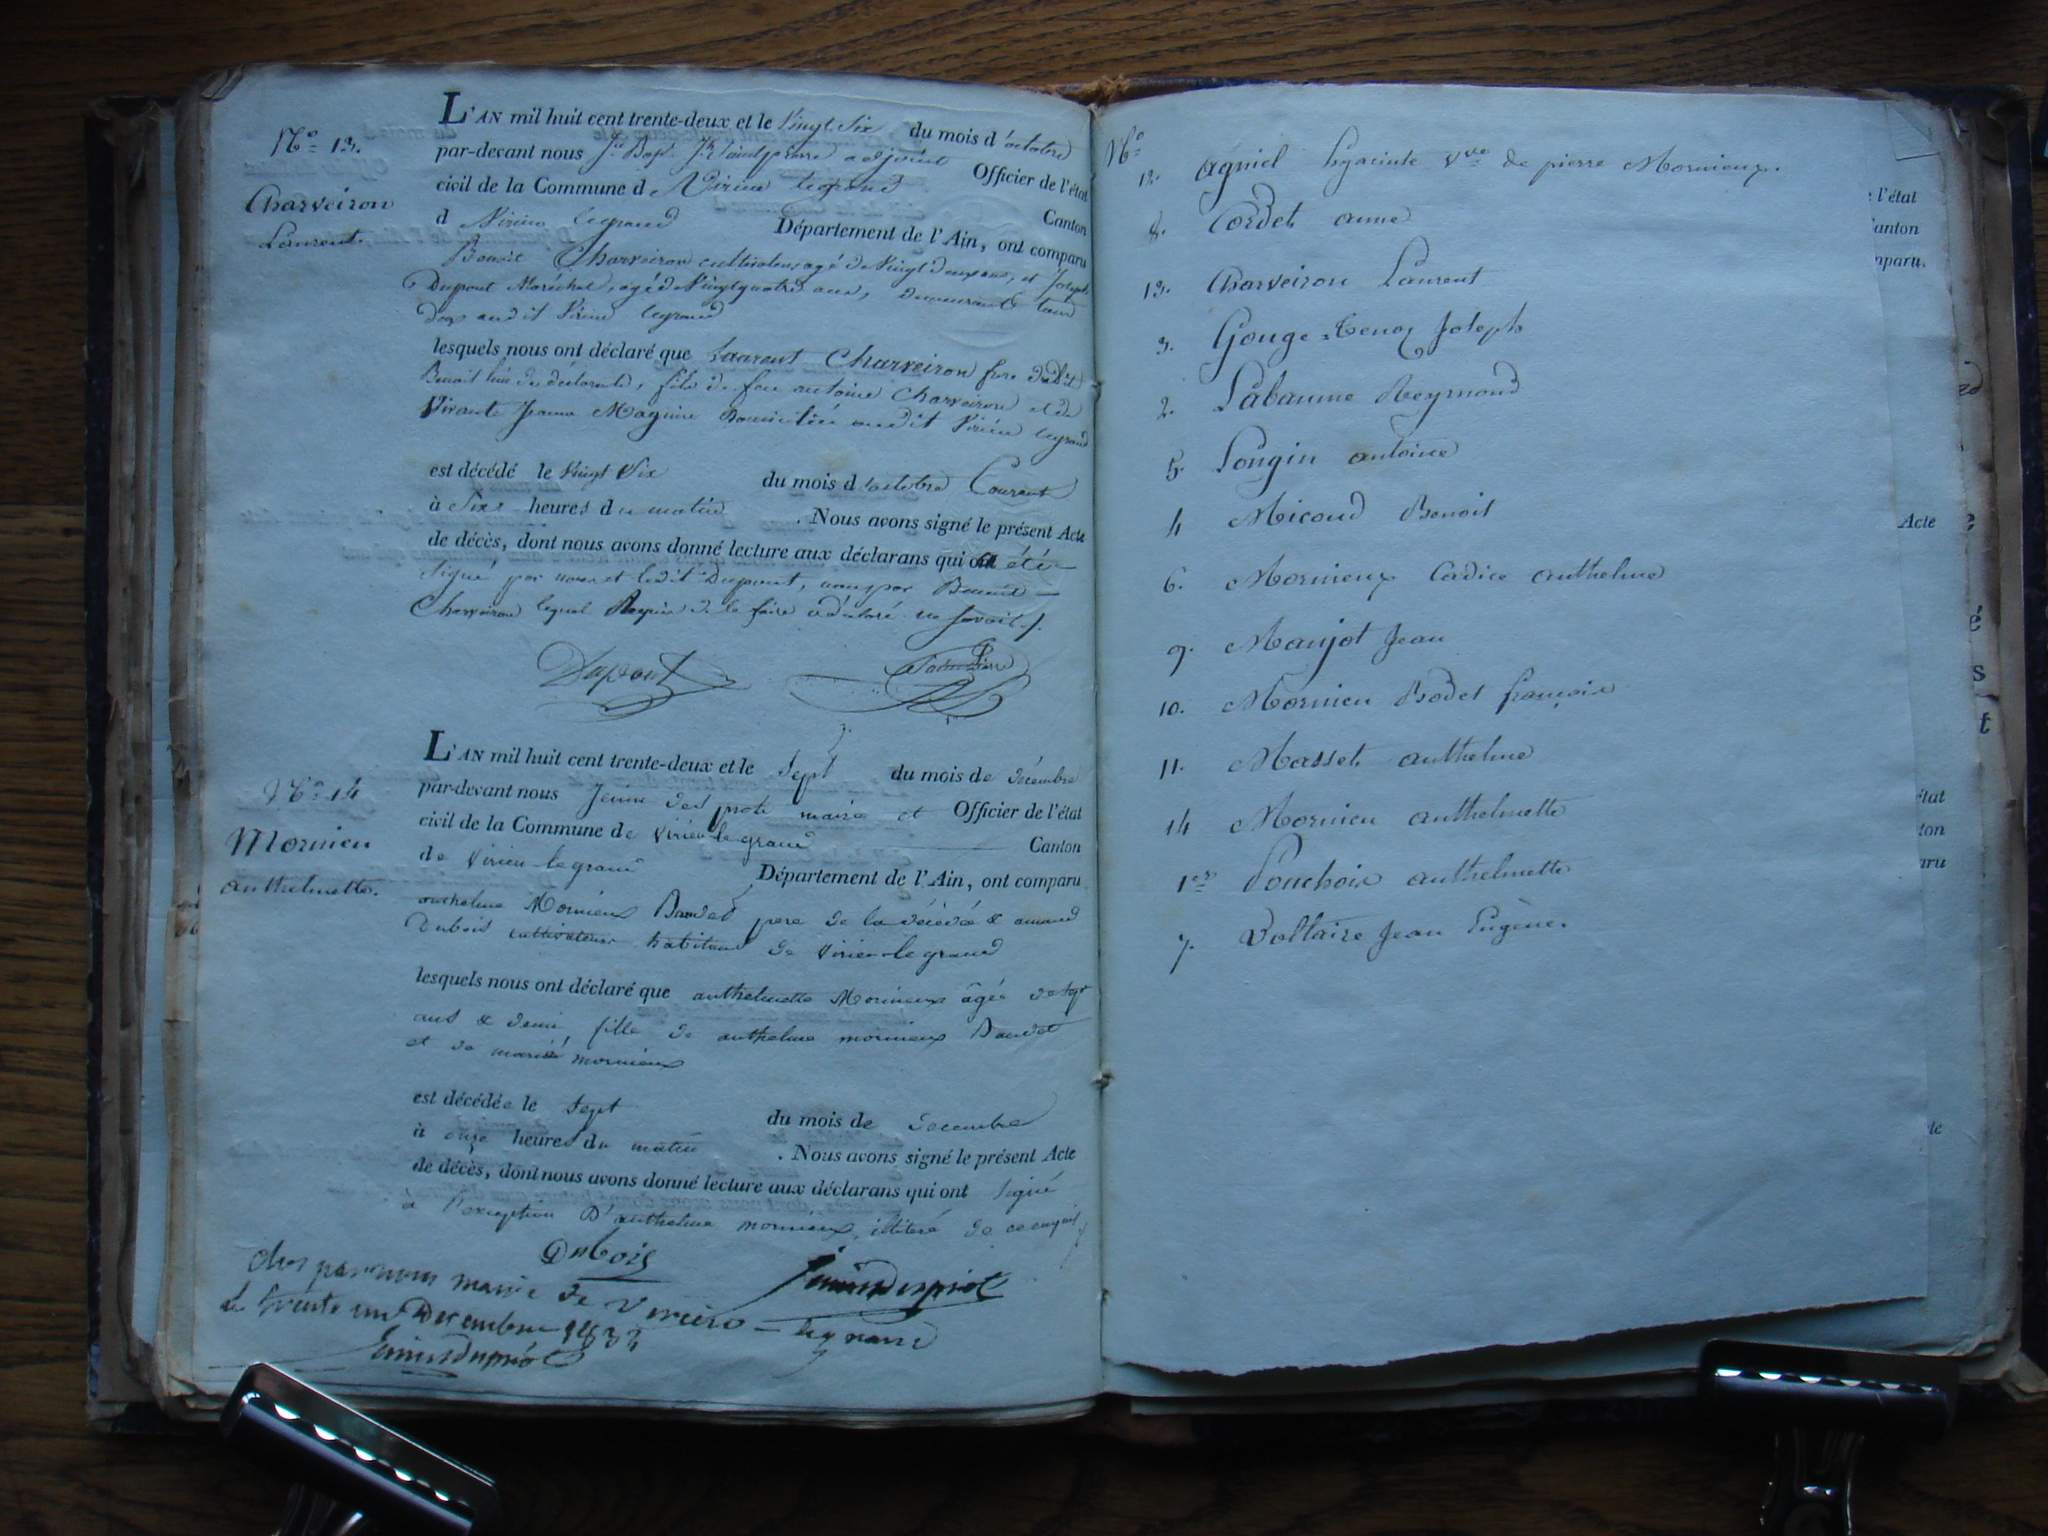 No 13.
Charveiron
Laurent.
L'AN mil huit cent trente-deux et le Vingt Six du mois d'octobre
par-devant nous adjoint Officier de l'état
civil de la Commune de Virieu legrand Canton
d Virieu legrand Département de l'Ain, ont comparu
Benoit Charveiron cultivateur agé de Vingt deux ans, et Joseph
Dupont Maréchal, agé de Vingt quatre ans, demeurants tous
deux audit Virieu legrand
lesquels nous ont déclaré que Laurent Charveiron frere dudit
Benoit l'un des déclarants, fils de feu antoine Charveiron et de
Vivante Jeanne Domiciliée audit Virieu legrand
est décédé le Vingt Six du mois d'octobre Courant
à Six heures du matin . Nous avons signé le présent Acte
de décès, dont nous avons donné lecture aux déclarans qui a été
Signé par nous et ledit Dupont, non par Benoit
Charveiron lequel Requis de le faire a déclaré ne savoir.
Dupont
No 14
Mornieu
anthelmette.
L'AN mil huit cent trente-deux et le Sept du mois de décembre
par-devant nous maire et Officier de l'état
civil de la Commune de Virieu-le-grand Canton
de Virieu-le-grand Département de l'Ain, ont comparu
anthelme Mornieux Baudet pere de la décédée & amand
Dubois cultivateur habitans de Virieu-le-grand
lesquels nous ont déclaré que anthelmette Mornieux âgée de sept
ans & demi fille de anthelme mornieux Baudet
et de marie mornieux
est décédée le Sept du mois de decembre
à onze heures du matin . Nous avons signé le présent Acte
de décès, dont nous avons donné lecture aux déclarans qui ont signé
à l'exception D'anthelme mornieux, illitéré de ce enquis
Dubois
clos par nous maire de Virieu-legrand
le trente un Decembre 1832
No
12. agniel hyacinte Vve de pierre Mornieux.
8. Cordet anne
13. Charveiron Laurent
3. Gouge Tenoz Joseph
2. Labaume Reymond
5. Longin antoine
4 Micoud Benoit
6. Mornieux Cadice anthelme
9. Maujot Jean
10. Mornieu Bodet françois
11. Masset anthelme
14 Mornieu anthelmette
1er Ponchoix anthelmette
7. Voltaire Jean Eugène.
l'état
Canton
mparu.
Acte
état
ton
aru